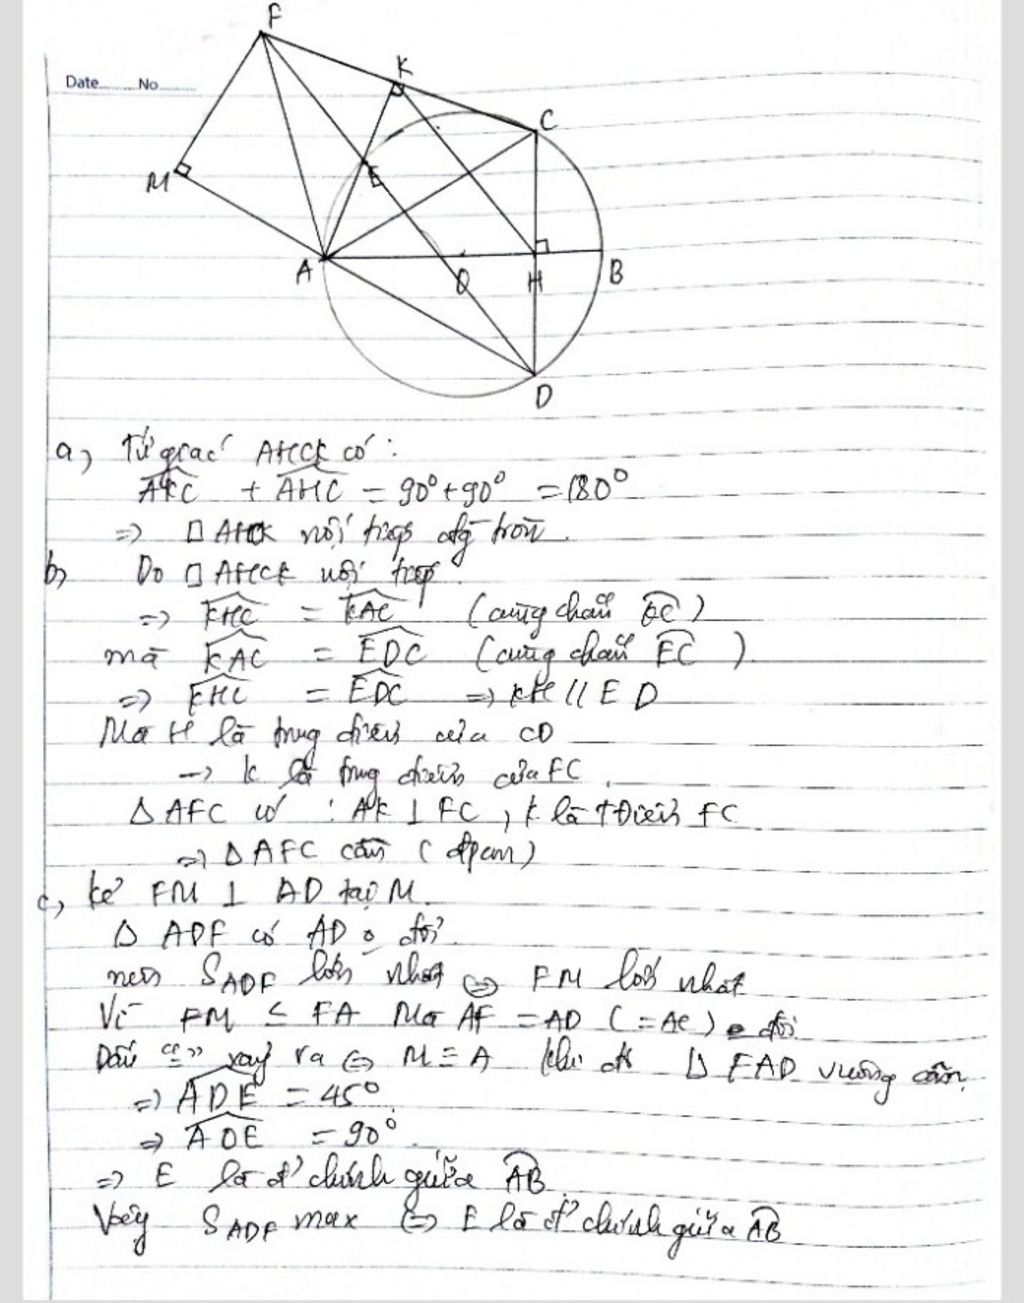 F
Date........No..........
K
C
M
E
A
O
H
B
D
a, Tứ giác AHCK có :
AKC + AHC = 90° + 90° = 180°
=> □ AHCK nội tiếp đg tròn.
b, Do □ AHCK nội tiếp.
=> KHC = KAC (cùng chắn KC)
mà KAC = EDC (cùng chắn EC)
=> KHC = EDC => KH // ED
Mà H là trung điểm của CD
-> K là trung điểm của FC.
Δ AFC có : AK ⊥ FC, K là tđiểm FC
=> Δ AFC cân (đpcm)
c, Kẻ FM ⊥ AD tại M.
Δ ADF có AD o đổi.
nên SADF lớn nhất <=> FM lớn nhất
Vì FM ≤ FA Mà AF = AD (= AC) đổi
Dấu "=" xảy ra <=> M ≡ A khi đó Δ FAD vuông cân.
=> ADE = 45°
=> AOE = 90°.
=> E là đ' chính giữa AB.
Vậy SADF max <=> E là đ' chính giữa AB